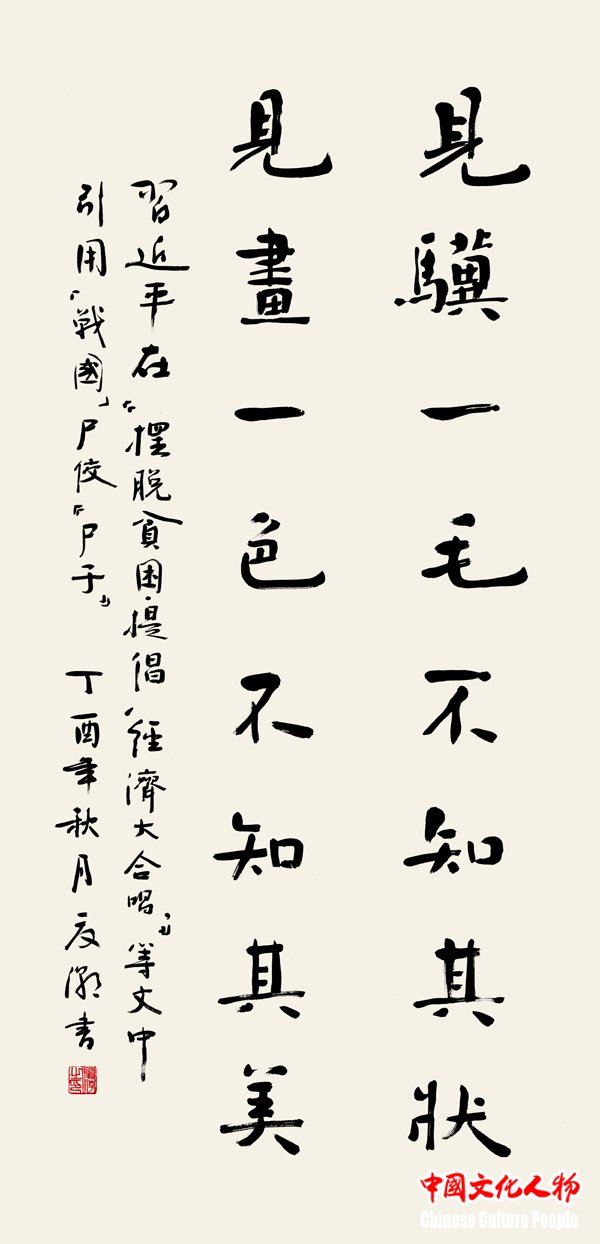 見驥一毛不知其狀
見畫一色不知其美
習近平在《擺脱貧困·提倡“經濟大合唱”》等文中
引用「戰國」尸佼《尸子》 丁酉年秋月 友灝書
中國文化人物
Chinese Culture People